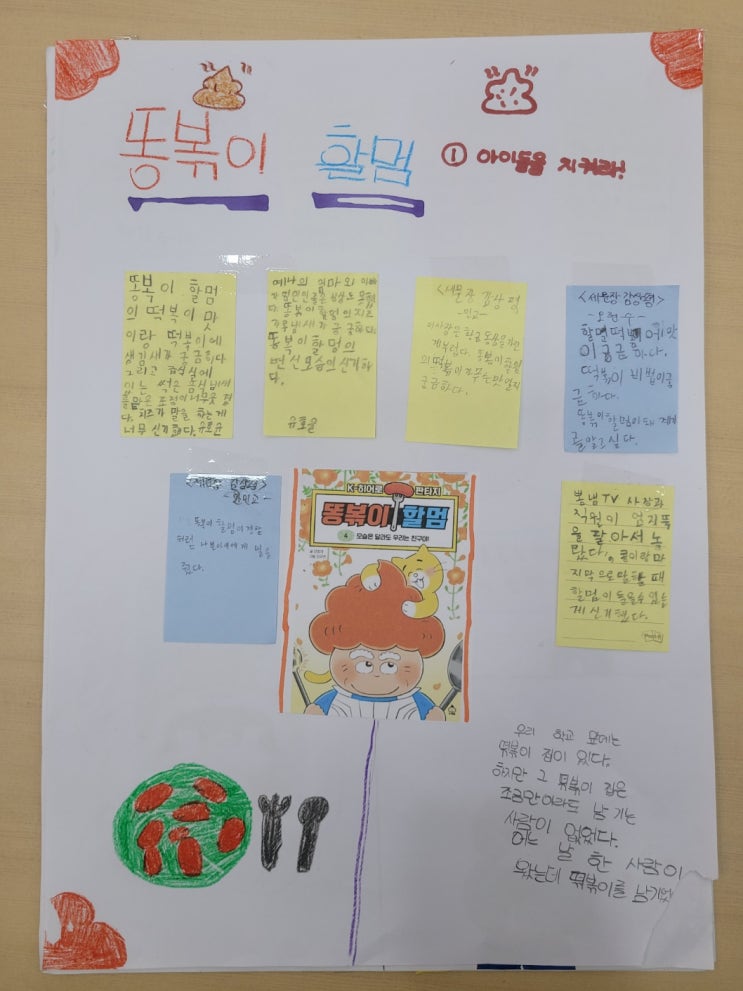 똥볶이 할멈 ① 아이들을 지켜라!
똥볶이 할멈
의 떡볶이 맛
이랑 떡볶이에
생김새가 궁금하다
그리고 급식실에
있는 썩은 음식냄새
다. 치즈가 말을 하는게
너무 신기했다. 유호윤
예나의 엄마와 아빠
가 범인인줄은 상상도 못했
다. 똥볶이 할멈의 진짜
궁금하다.
똥볶이 할멈의
변신모습이 신기하
다.
유호윤
<세문장 감상평>
똥볶이 할멈
의 떡볶이가 무슨 맛일지
궁금하다.
<세문장 감상평>
할멈 떡볶이에 맛
이 궁금하다.
떡볶이 비법이 궁
금하다.
똥볶이 할멈이 돼
고 싶다.
똥볶이 할멈이 경찰
처럼 나쁜이에게 벌을
줬다.
K-히어로 판타지
똥볶이 할멈
4 모습은 달라도 우리는 친구야!
봄냄TV 사장과
직원이 엄지뚝
을 닮아서 놀
랐다. 콩이랑 마
지막으로 말할 때
할멈이 들을수 있는
게 신기했다.
우리 학교 앞에는
떡볶이 집이 있다.
하지만 그 떡볶이 집은
조금만이라도 남기는
사람이 없었다.
어느 날 한 사람이
왔는데 떡볶이를 남기었